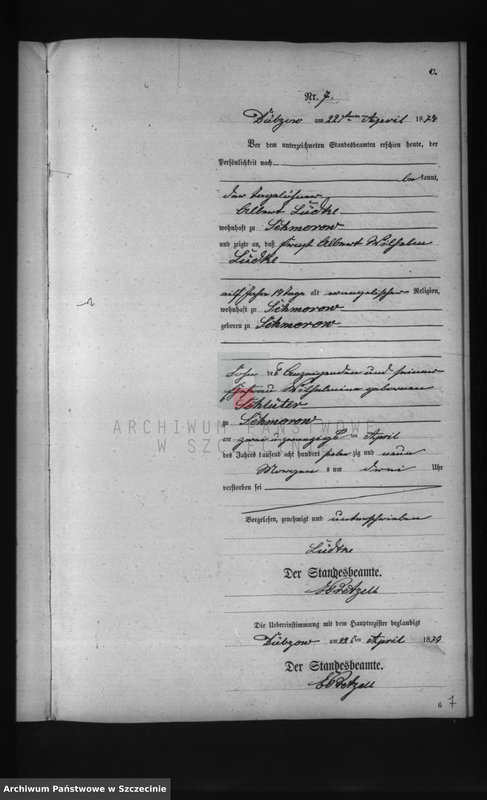 C.
Nr. 7.
Dübzow am 22ten April 1879
Vor dem unterzeichneten Standesbeamten erschien heute, der
Persönlichkeit nach
be kannt,
der Tagelöhner
Albert Lüdke
wohnhaft zu Schmorow
und zeigte an, daß Albert Wilhelm
Lüdke
Jahre Tage alt evangelischer Religion,
wohnhaft zu Schmorow
geboren zu Schmorow
Sohn des Anzeigenden und seiner
Ehefrau Wilhelmine geborenen
Schlüter
zu Schmorow
am zwei u zwanzigs im April
des Jahres tausend acht hundert sieben zig und neun
Morgens um drei Uhr
verstorben sei
Vorgelesen, genehmigt und unterschrieben
Lüdtke
Der Standesbeamte.
Die Uebereinstimmung mit dem Hauptregister beglaubigt
Dübzow am 22 ten April 1879
Der Standesbeamte.
6 7
ARCHIWUM PAŃSTWOWE
W SZCZECINIE
Archiwum Państwowe w Szczecinie